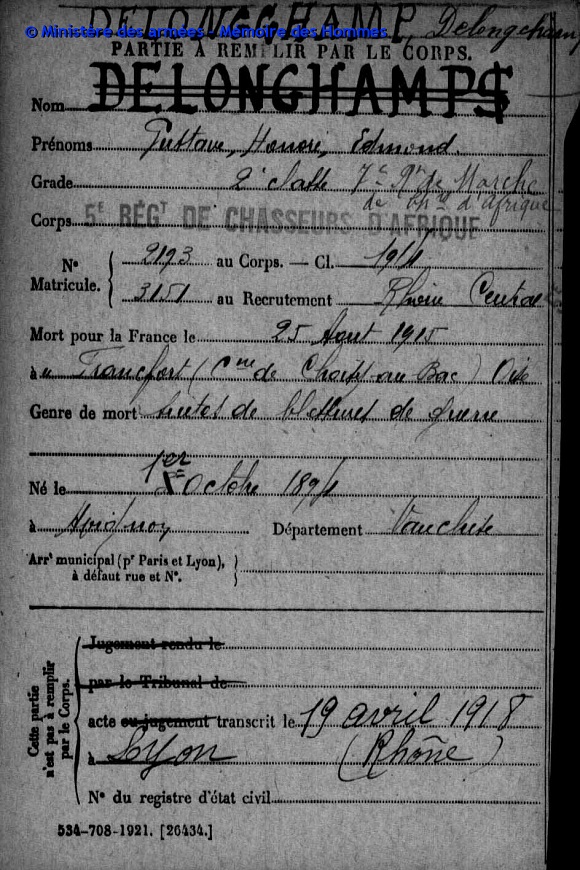 DELONGCHAMP, Delongchamp
© Ministère des armées - Mémoire des Hommes
PARTIE À REMPLIR PAR LE CORPS.
Nom DELONGHAMPS
Prénoms Gustave, Honoré, Edmond.
Grade 2e classe 7e Rt de Marche
de Ch d'afrique
Corps 5e RÉGT DE CHASSEURS D'AFRIQUE
N° Matricule. 2193 au Corps. — Cl. 1914
3151 au Recrutement Rhône Central
Mort pour la France le 25 Aout 1915
à Francfort (Cne de Choisy au Bac) Oise
Genre de mort suites de blessures de guerre
Né le 1er Octobre 1894
à Avignon Département Vaucluse
Arrt municipal (pr Paris et Lyon),
à défaut rue et N°.
Cette partie n'est pas à remplir par le Corps.
Jugement rendu le
par le Tribunal de
acte ou jugement transcrit le 19 avril 1918
à Lyon (Rhône)
N° du registre d'état civil
534-708-1921. [26434.]